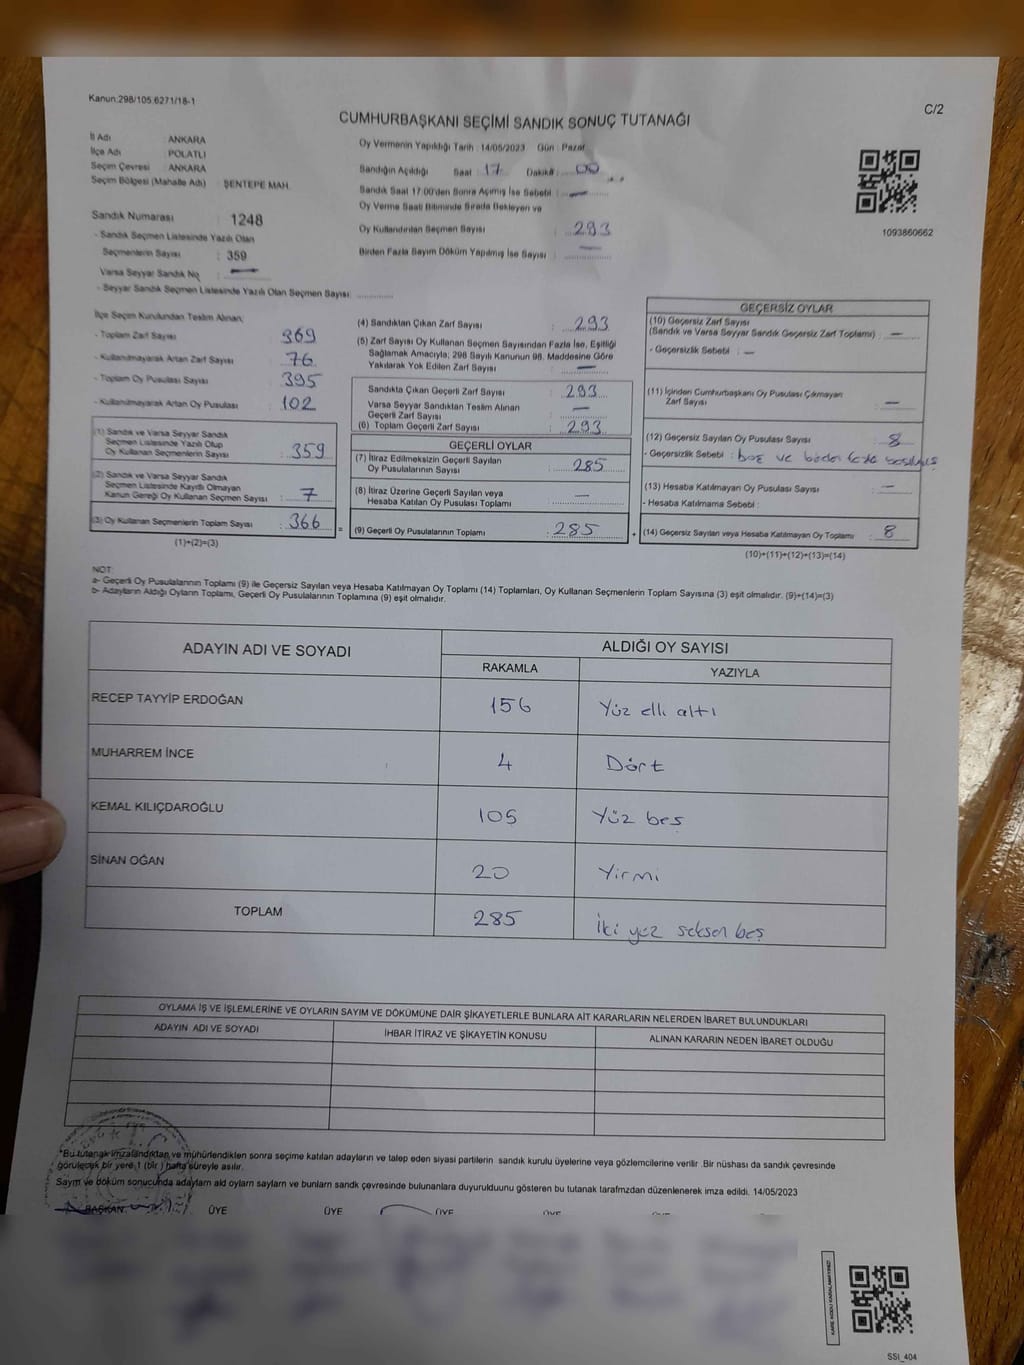 Kanun:298/105.6271/18-1
C/2
CUMHURBAŞKANI SEÇİMİ SANDIK SONUÇ TUTANAĞI
İl Adı : ANKARA
İlçe Adı : POLATLI
Seçim Çevresi : ANKARA
Seçim Bölgesi (Mahalle Adı) : ŞENTEPE MAH.
Sandık Numarası : 1248
- Sandık Seçmen Listesinde Yazılı Olan
Seçmenlerin Sayısı : 359
Varsa Seyyar Sandık No : —
- Seyyar Sandık Seçmen Listesinde Yazılı Olan Seçmen Sayısı: ............
Oy Vermenin Yapıldığı Tarih : 14/05/2023 Gün : Pazar
Sandığın Açıldığı Saat : 17 Dakika : 00
Sandık Saat 17.00'den Sonra Açılmış İse Sebebi : —
Oy Verme Saati Bitiminde Sırada Bekleyen ve
Oy Kullandırılan Seçmen Sayısı : 293
Birden Fazla Sayım Döküm Yapılmış İse Sayısı : —
1093860662
İlçe Seçim Kurulundan Teslim Alınan;
- Toplam Zarf Sayısı : 369
- Kullanılmayarak Artan Zarf Sayısı : 76
- Toplam Oy Pusulası Sayısı : 395
- Kullanılmayarak Artan Oy Pusulası : 102
(1) Sandık ve Varsa Seyyar Sandık
Seçmen Listesinde Yazılı Olup
Oy Kullanan Seçmenlerin Sayısı : 359
(2) Sandık ve Varsa Seyyar Sandık
Seçmen Listesinde Kayıtlı Olmayan
Kanun Gereği Oy Kullanan Seçmen Sayısı : 7
(3) Oy Kullanan Seçmenlerin Toplam Sayısı : 366
(1)+(2)=(3)
(4) Sandıktan Çıkan Zarf Sayısı : 293
(5) Zarf Sayısı Oy Kullanan Seçmen Sayısından Fazla İse, Eşitliği
Sağlamak Amacıyla; 298 Sayılı Kanunun 98. Maddesine Göre
Yakılarak Yok Edilen Zarf Sayısı : —
Sandıkta Çıkan Geçerli Zarf Sayısı : 293
Varsa Seyyar Sandıktan Teslim Alınan
Geçerli Zarf Sayısı : —
(6) Toplam Geçerli Zarf Sayısı : 293
GEÇERLİ OYLAR
(7) İtiraz Edilmeksizin Geçerli Sayılan
Oy Pusulalarının Sayısı : 285
(8) İtiraz Üzerine Geçerli Sayılan veya
Hesaba Katılan Oy Pusulası Toplamı : —
= (9) Geçerli Oy Pusulalarının Toplamı : 285 +
GEÇERSİZ OYLAR
(10) Geçersiz Zarf Sayısı
(Sandık ve Varsa Seyyar Sandık Geçersiz Zarf Toplamı) : —
- Geçersizlik Sebebi : —
(11) İçinden Cumhurbaşkanı Oy Pusulası Çıkmayan
Zarf Sayısı : —
(12) Geçersiz Sayılan Oy Pusulası Sayısı : 8
- Geçersizlik Sebebi : boş ve birden fazla
(13) Hesaba Katılmayan Oy Pusulası Sayısı : —
- Hesaba Katılmama Sebebi :
(14) Geçersiz Sayılan veya Hesaba Katılmayan Oy Toplamı : 8
(10)+(11)+(12)+(13)=(14)
NOT:
a- Geçerli Oy Pusulalarının Toplamı (9) ile Geçersiz Sayılan veya Hesaba Katılmayan Oy Toplamı (14) Toplamları, Oy Kullanan Seçmenlerin Toplam Sayısına (3) eşit olmalıdır. (9)+(14)=(3)
b- Adayların Aldığı Oyların Toplamı, Geçerli Oy Pusulalarının Toplamına (9) eşit olmalıdır.
ADAYIN ADI VE SOYADI ALDIĞI OY SAYISI
RAKAMLA YAZIYLA
RECEP TAYYİP ERDOĞAN 156 Yüz elli altı
MUHARREM İNCE 4 Dört
KEMAL KILIÇDAROĞLU 105 Yüz beş
SİNAN OĞAN 20 Yirmi
TOPLAM 285 İki yüz seksen beş
OYLAMA İŞ VE İŞLEMLERİNE VE OYLARIN SAYIM VE DÖKÜMÜNE DAİR ŞİKAYETLERLE BUNLARA AİT KARARLARIN NELERDEN İBARET BULUNDUKLARI
ADAYIN ADI VE SOYADI İHBAR İTİRAZ VE ŞİKAYETİN KONUSU ALINAN KARARIN NEDEN İBARET OLDUĞU
*Bu tutanak imzalandıktan ve mühürlendikten sonra seçime katılan adayların ve talep eden siyasi partilerin sandık kurulu üyelerine veya gözlemcilerine verilir .Bir nüshası da sandık çevresinde
görülecek bir yere 1 (bir ) hafta süreyle asılır.
Sayım ve döküm sonucunda adayların ald oyların sayların ve bunların sandk çevresinde bulunanlara duyurulduunu gösteren bu tutanak tarafmzdan düzenlenerek imza edildi. 14/05/2023
BAŞKAN ÜYE ÜYE ÜYE
KARE KODU KARALAMAYINIZ!
SSİ_404